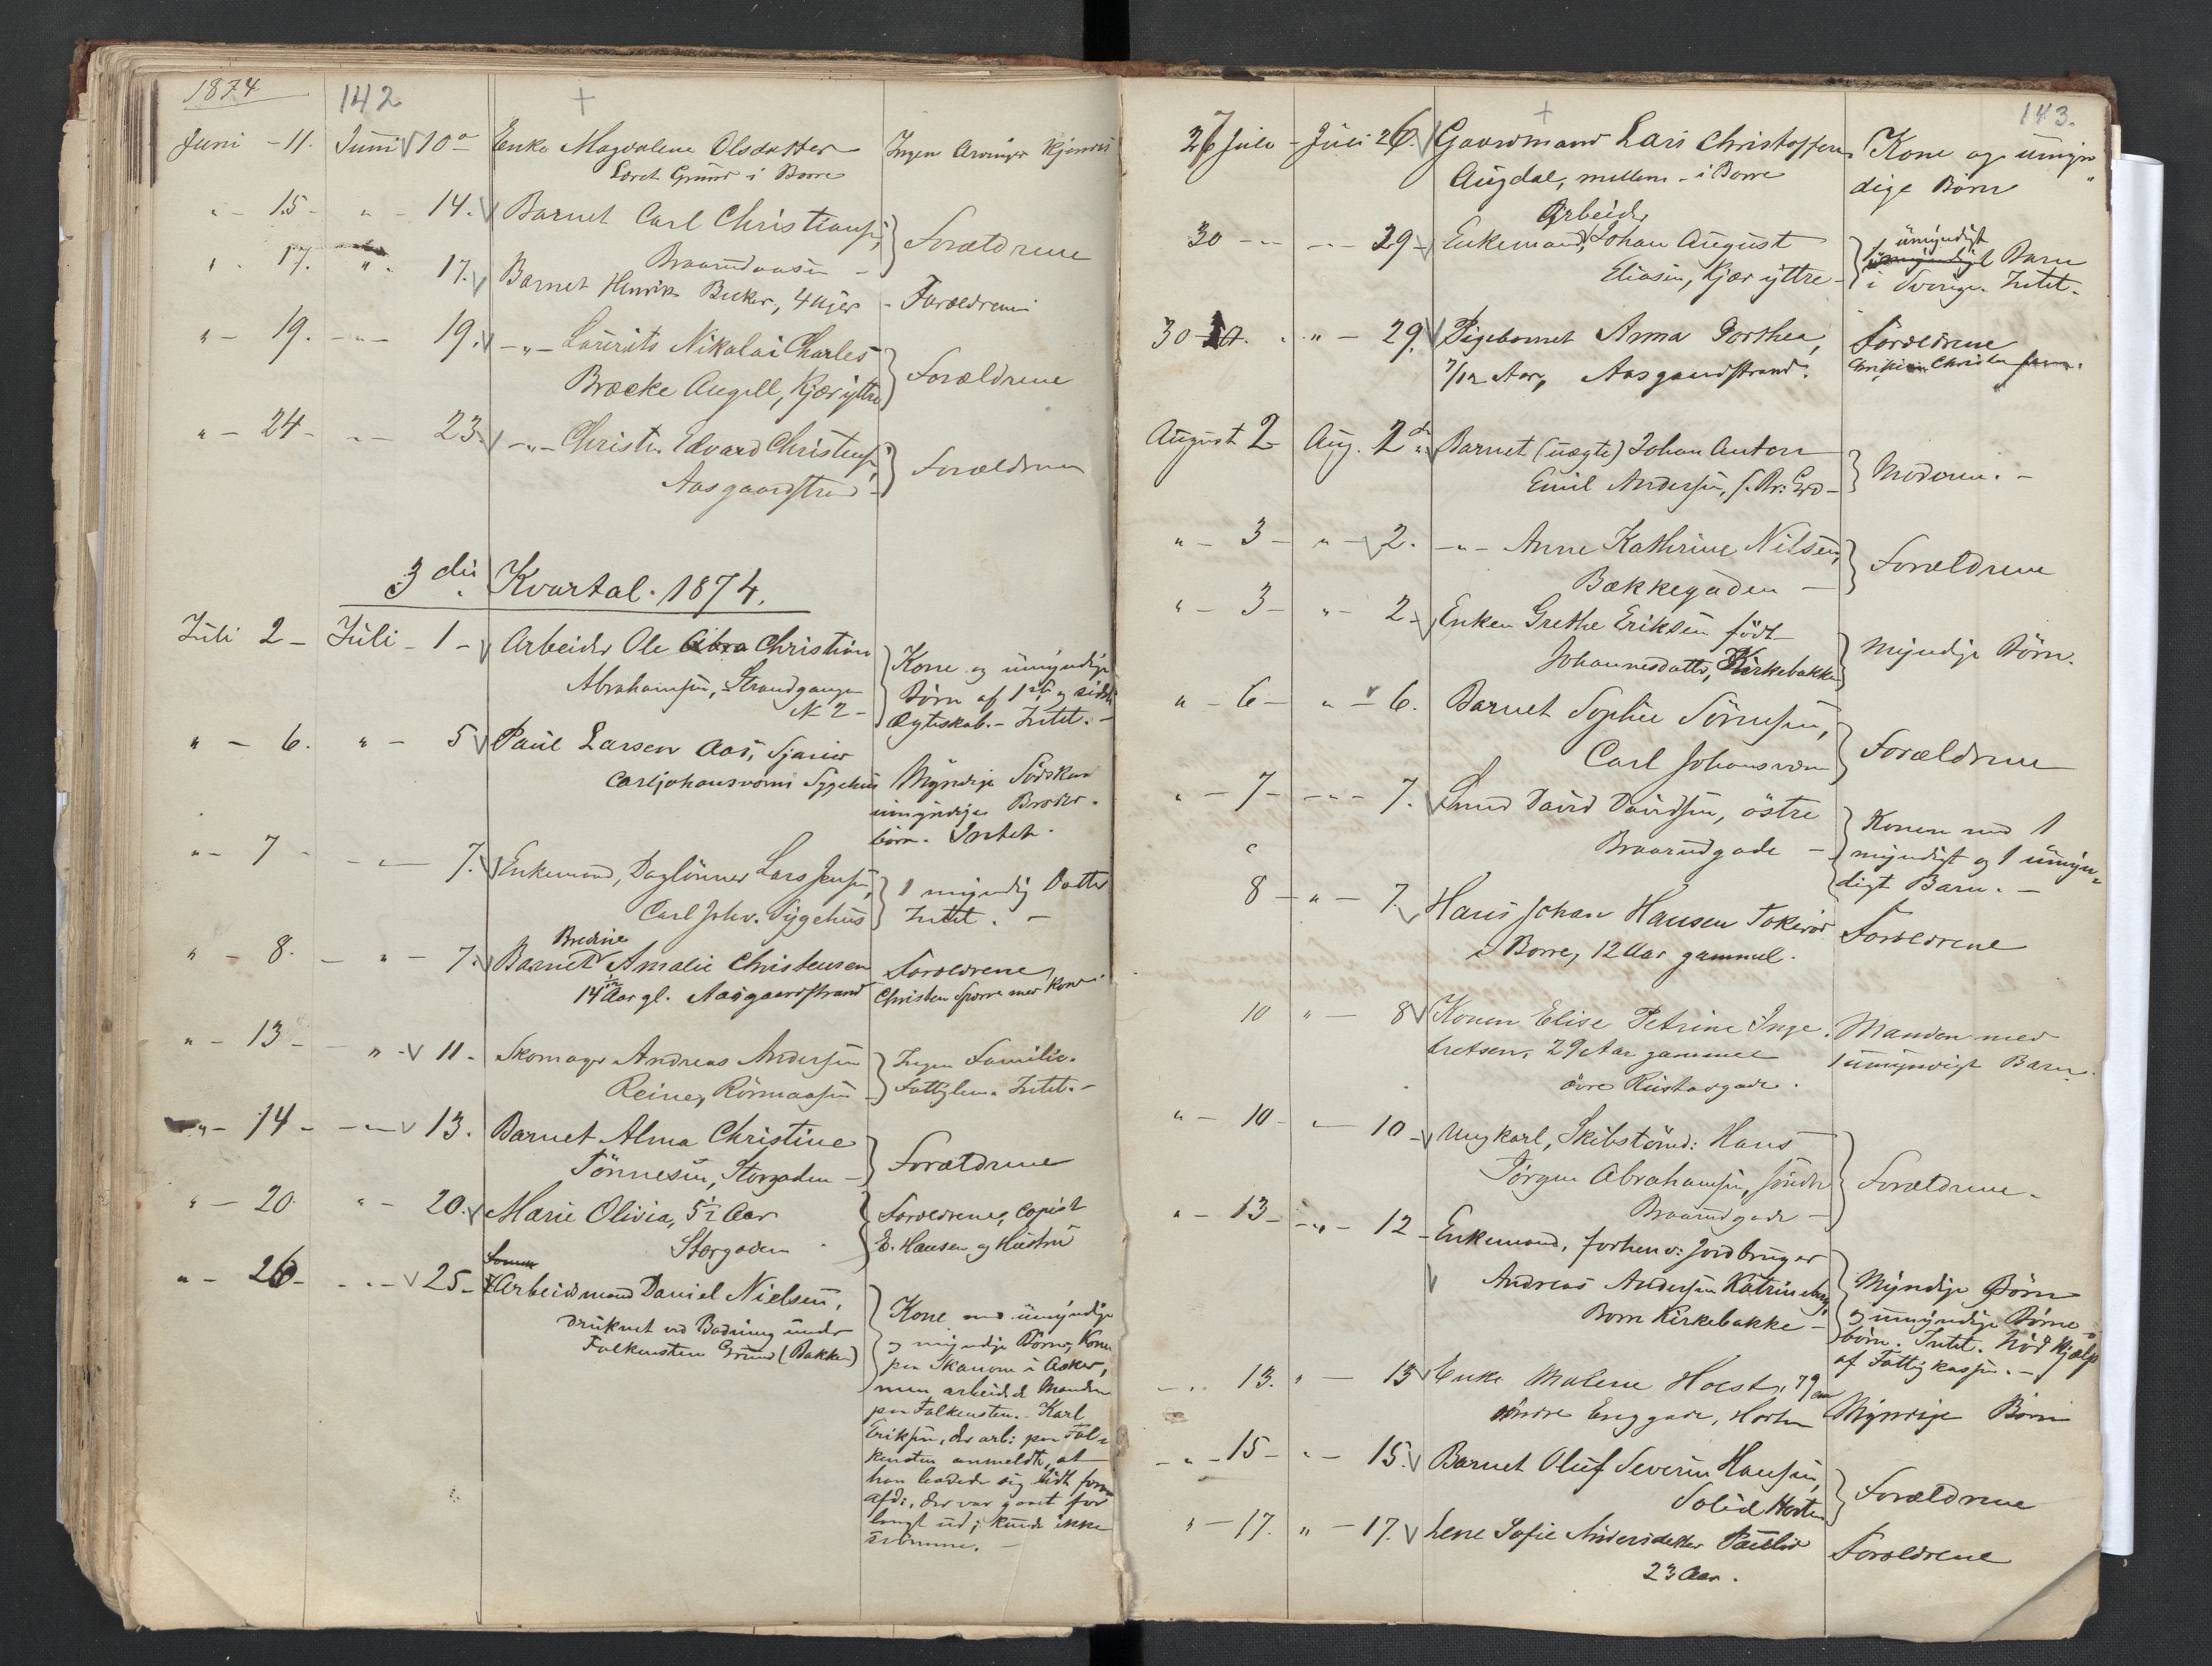 1874
142
Juni - 11. Juni 10de Enke Magdalene Olsdatter Ingen Arvinger
Grund i Borre
" - 15 - " - 14. Barnet Carl Christians
Braarudaasen - Forældrene
" - 17. " - 17. Barnet Henrik Becker, 4 Uger - Forældrene
" - 19. - " - 19. - " - Laurits Nikolai Charles
Bræcke Angell, Kjær yttre Forældrene
" - 24 - " - 23. - " - Christen Edvard Christensen
Aasgaardstrand - Forældrene
3die Kvartal. 1874.
Juli 2 - Juli - 1 - Arbeider Ole Abra Christian Kone og umyndige
Abrahamsen, Strandgangen Børn af 1ste og sidste
N 2 - Ægteskab. - Intet. -
" - 6. " - 5 Paul Larsen Aas,
Carljohansværns Sygehus Myndige Sødskend
umyndige Broder-
børn. Intet.
" - 7 - - " - 7. Enkemand, Daglønner Lars Jensen, 1 myndig Datter
Carl Johv. Sygehus Intet. -
Bredine
" - 8. - " - 7. Barnet Amalie Christensen Forældrene
14 Aar gl. Aasgaardstrand Christen Sporre med Kone
" - 13 - " - 11 - Skomager Andreas Andersen Ingen Familie.
Reine, Rørmaasen - Fattiglem. Intet. -
" - 14 - - " - 13. Barnet Alma Christine
Tönnesen, Storgaden - Forældrene
" - 20 " - 20. Marie Olivia, 5½ Aar Forældrene, Copist
Storgaden - E. Hansen og Hustru
" - 26 - - " - 25 - Arbeidsmand Daniel Nielsen, Kone med umyndige
druknet ved Badning under og myndige Børn, Kone
Falkensten Grund (Bakken) paa Skanom i Asker,
men arbeidede Manden
paa Falkensten. Karl
Eriksen, der arb: paa Fal-
kensten anmeldte, at
han badede sig
afd:, der var gaaet for
langt ud; kunde ikke
svömme. -
143.
27 Juli - Juli 26. Gaardmand Lars Christoffersen Kone og umyn-
Augdal, mellem - i Borre dige Børn
Arbeider
30 - " - " - 29 - Enkemand, Johan August umyndigt
Eliasen, Kjær yttre - 1 Barn
i Sverige. Intet -
30 - " - 29. Pigebarnet Anna Dorthea, Forældrene
7/12 Aar, Aasgaardstrand.
August 2 Aug. 2den Barnet (uægte) Johan Anton
Emil Andersen, Moderen. -
" - 3 - " - 2. - " - Anne Kathrine Nilsen,
Bækkegaden - Forældrene
" - 3 - " - 2 - Enken Grethe Eriksen född
Johannesdatter, Kirkebakken Myndige Börn.
" - 6 - " - 6. Barnet Sophie Sörensen,
Carl Johansværn Forældrene
" - 7 - - " - 7. Smed David Davidsen, østre Konen med 1
Braarudgade - myndigt og 1 umyn-
digt Barn. -
8 - " - 7. Hans Johan Hansen Tokerød Forældrene
i Borre, 12 Aar gammel.
10 " - 8 Konen Elise Petrine Inge- Manden med
bretsen, 29 Aar gammel 1 umyndigt Barn.
øvre Rustadgade.
" - 10 - " - 10 - Ungkarl, Skibstömd: Hans
Jörgen Abrahamsen, söndre Forældrene -
Braarudgade -
" - 13 - - " - 12 - Enkemand, forhenv: Jordbruger
Andreas Andersen Katrineborg, Myndige Børn
Born Kirkebakke - og umyndige Børne-
börn. Intet. Nöd Hjælp
af Fattigkassen. -
- " 13. " - 13 Enke Malene Holst, 79 Aar
søndre Enggade, Horten Myndige Børn
- " - 15 - " - 15. Barnet Oluf Severin Hansen,
Solid Horten Forældrene
" - 17. " - 17. Lene Sofie Andersdatter Paulsrød Forældrene
23 Aar.